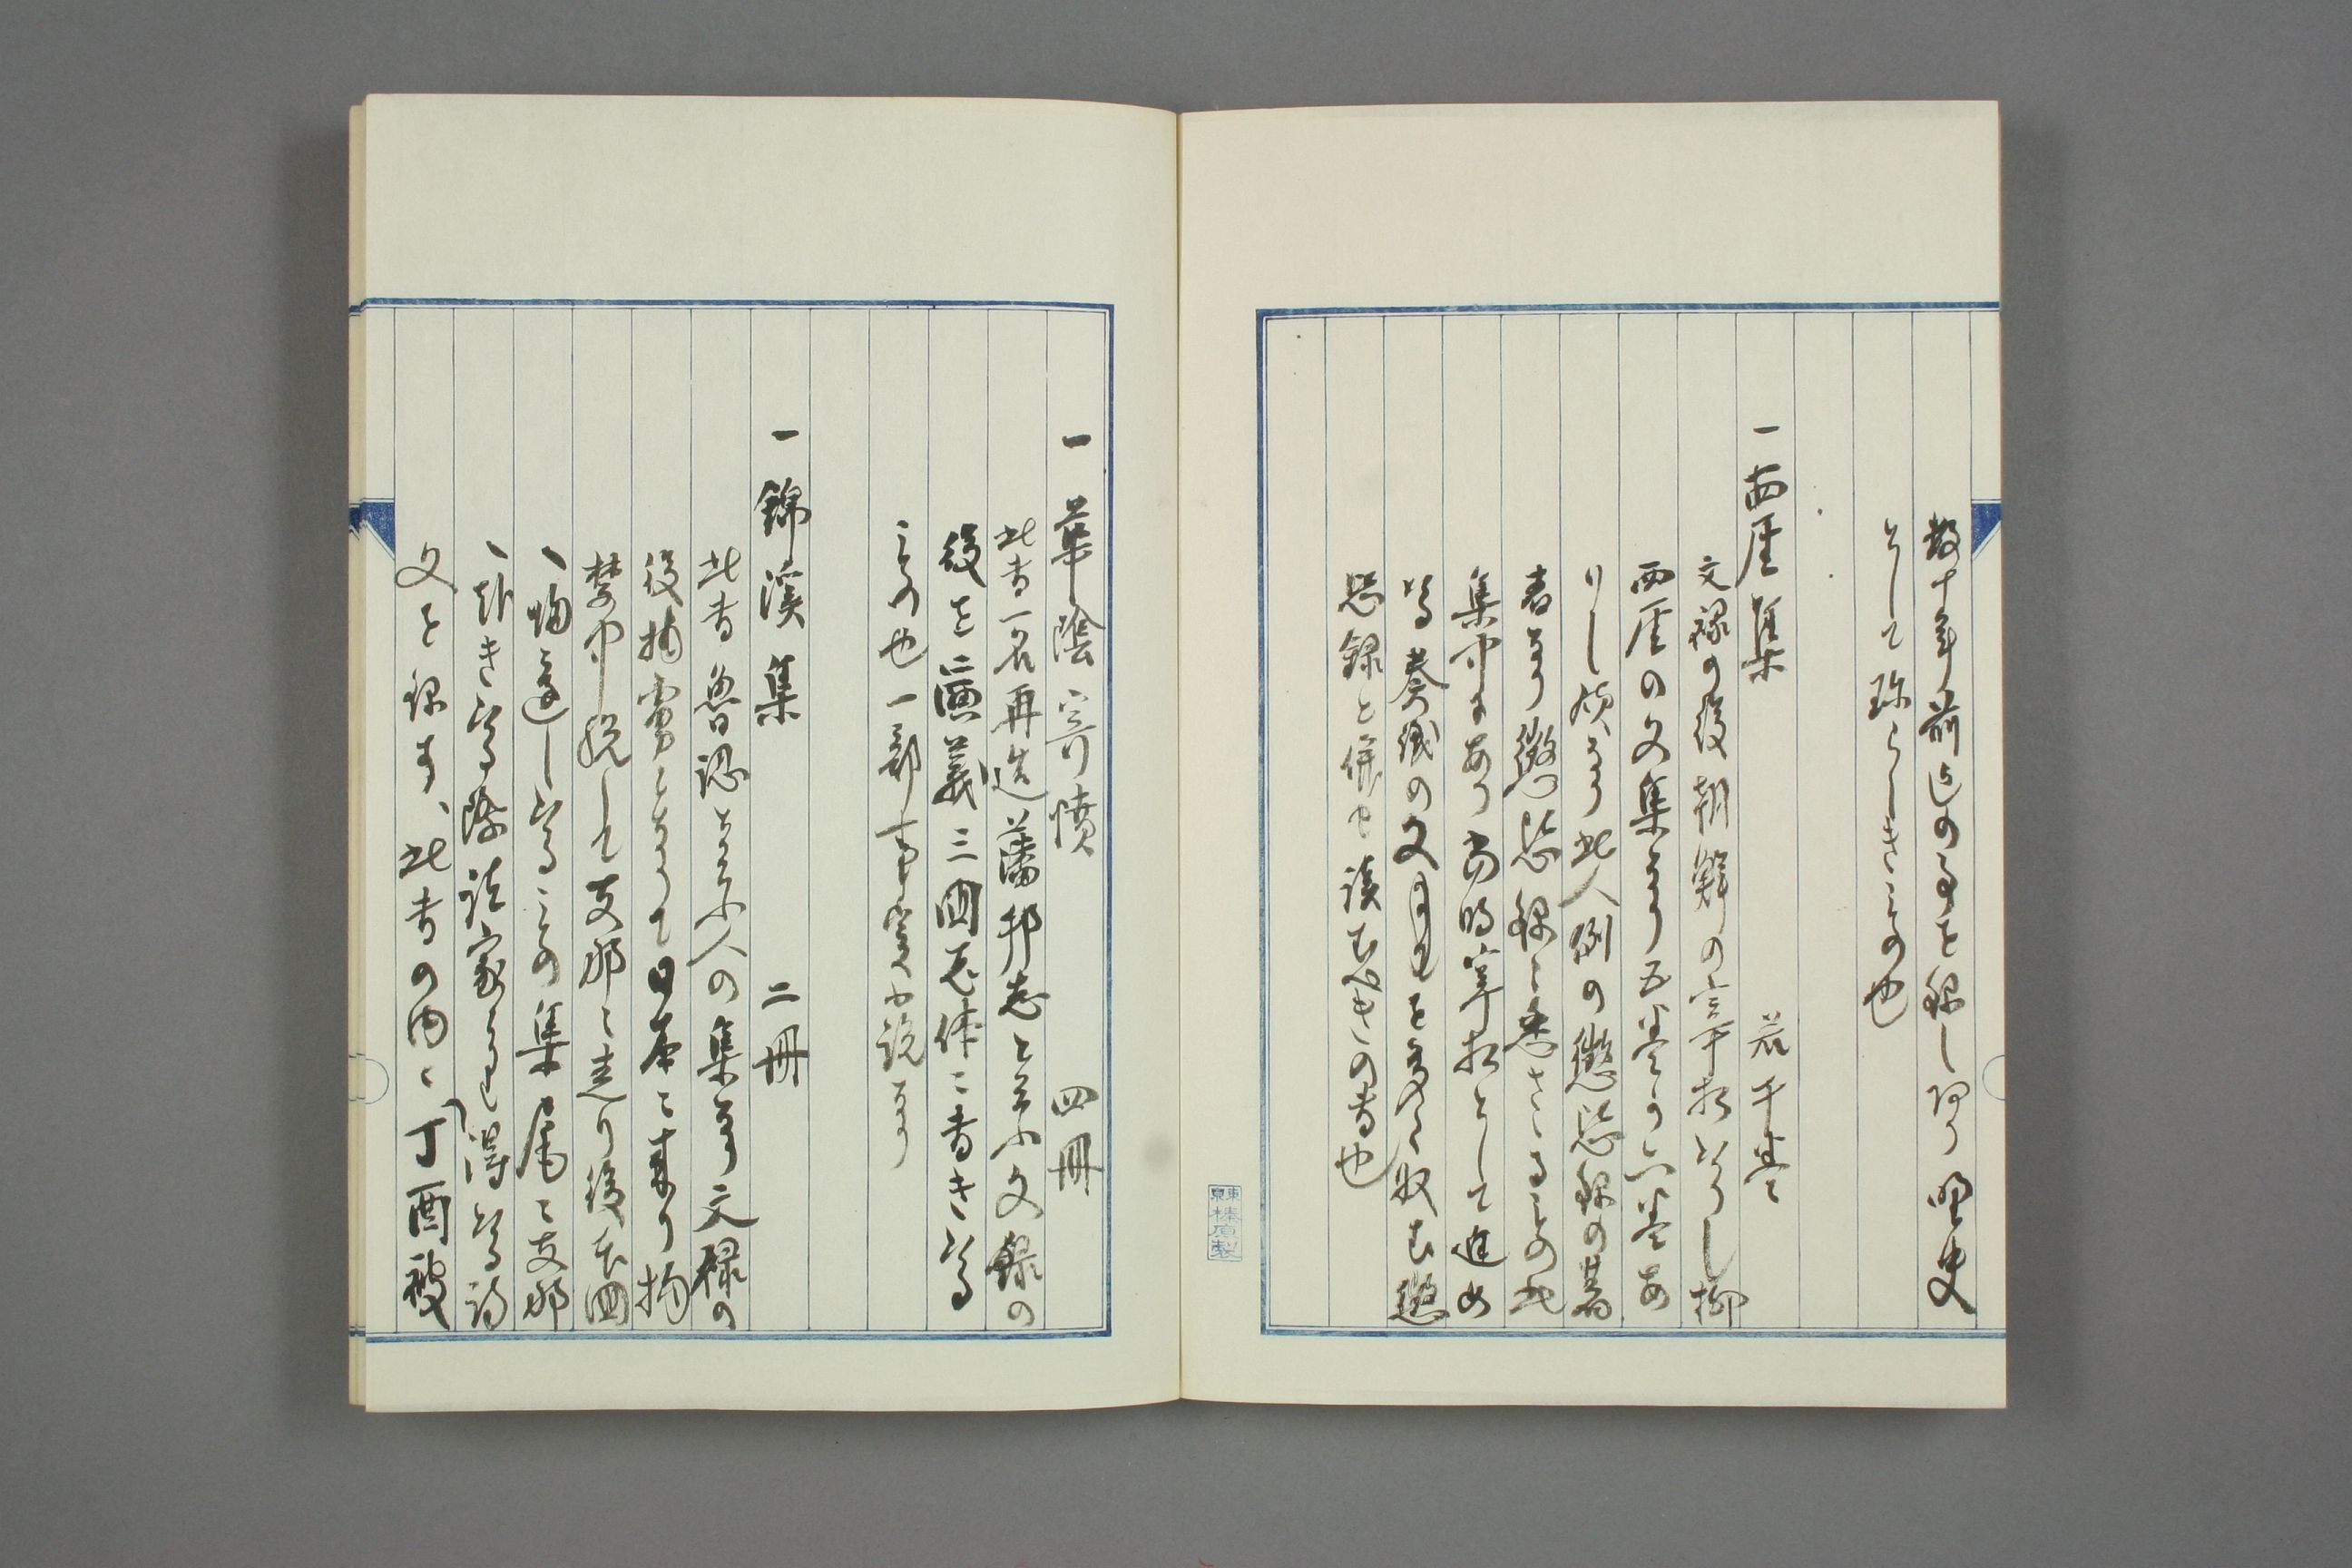 数十年前迄の事を録しあり野史
として珍らしきもの也
一西厓集 若干巻
文禄の役朝鮮の宰相たりし柳
西厓の文集なり五巻か六巻あ
りし様なり此人例の懲毖録の著
者なり懲毖録に悉さゝるもの此
集中にあり当時宰相として進め
たる奏議の文
懲
毖録と併せ読むべきの書也
一華陰寄憤 四冊
此書一名再造藩邦志と云ふ文録の
役を演義三国志体に書きたる
もの也一部事実小説なり
一錦溪集 二冊
此書魯認と云ふ人の集なり文禄の
役捕虜となりて日本に来り拘
禁中脱して支那に走り後本国
へ帰還したるもの集尾に支那
へ赴きたる際諸家より得たる詩
文を録す、此書の内に「丁酉被
東京榛原製